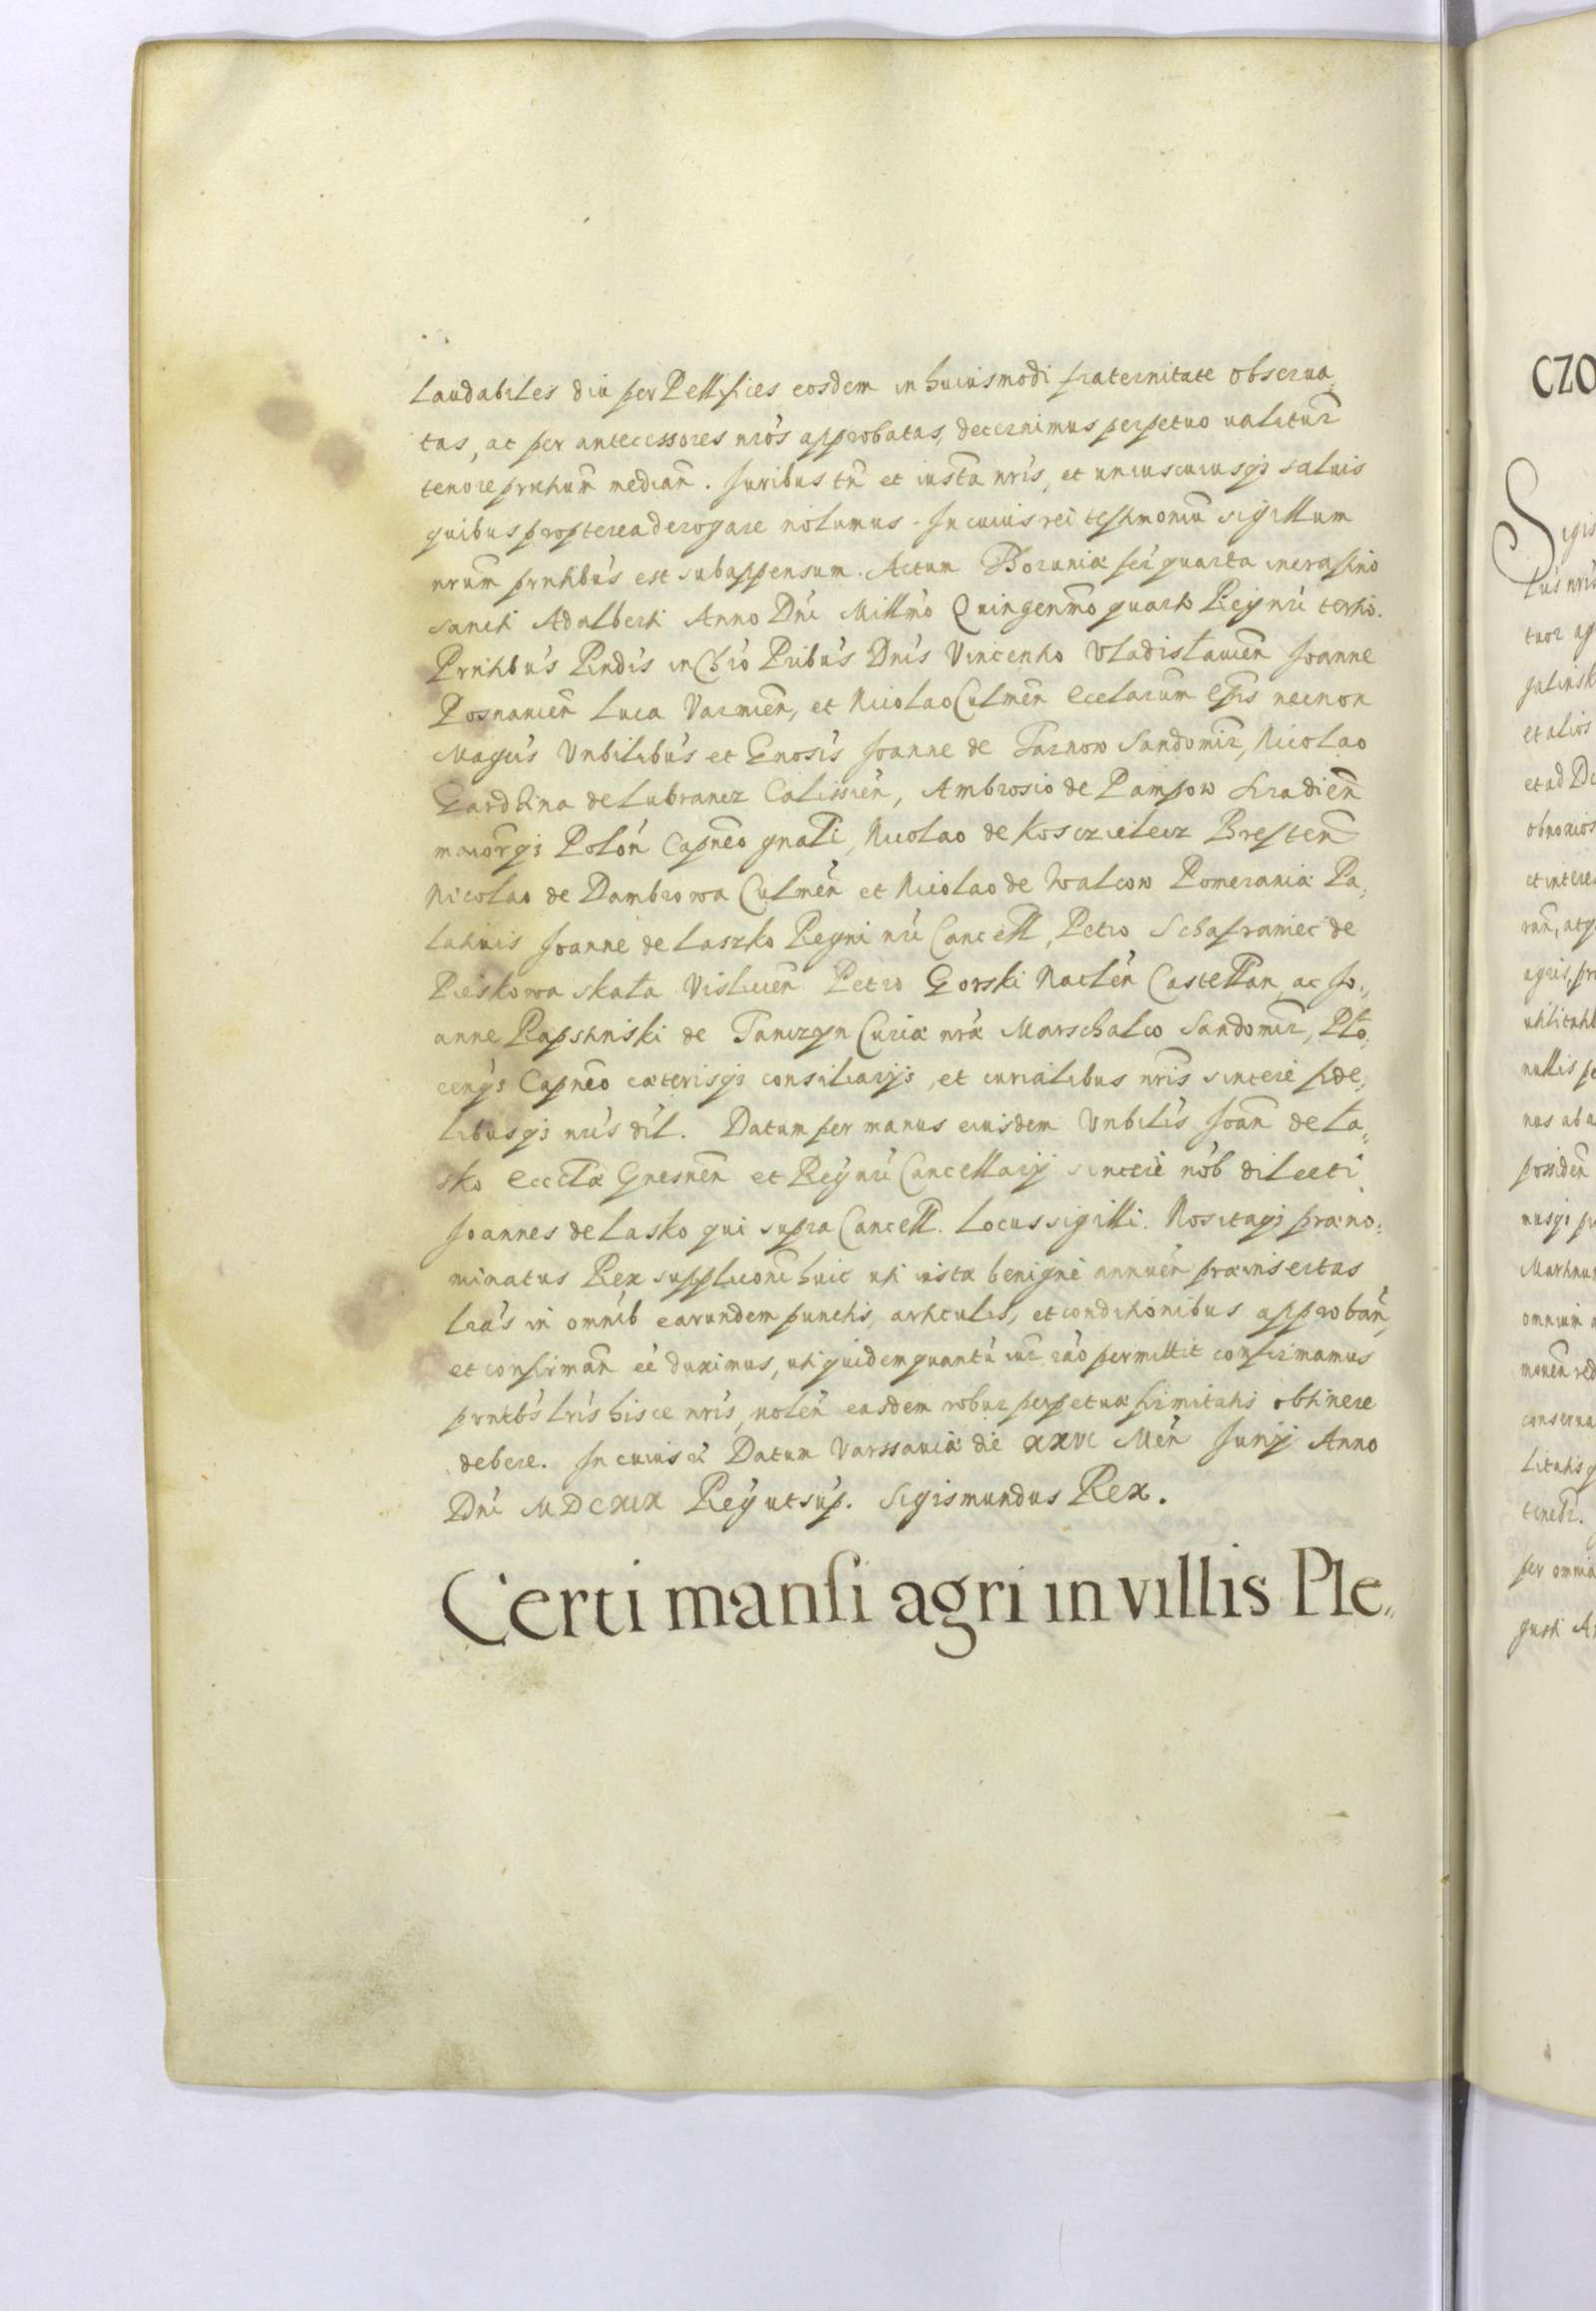 laudabiles diu per Pellifices eosdem in huiusmodi fraternitate obserua,
tas, ac per antecessores nrōs approbatas, decernimus perpetuo ualitur̄
tenore prntium̄ median̄. Juribus tn̄ et iusta nr̄is, et uniuscuiusqs saluis
quibus propterea derogare nolumus. In cuius rei testimoniū sigillum
nrum̄ prntibūs est subappensum. Actum Thoruniæ fer̄ quarta in crastino
sancti Adalberti Anno Dnī Millmō Quingenmō quarto Regnī nrī tertio.
Prntibūs Rndīs in Chrō Pribūs Dnīs Vincentio Vladislauien̄ Joanne
Posnanien̄ Luca Varmien̄, et Nicolao Culmen̄ ecclarum̄ Epīs necnon
Magcīs Vnbilibūs et Gnosīs Joanne de Tarnow Sandomir̄, Nicolao
Gardzina de Lubrancz Calissien̄, Ambrosio de Pampow Siradien̄
maiorīsqs Polon̄ Capneō gnalī, Nicolao de Kosczielecz Bresten̄
Nicolao de Dambrowa Culmen̄ et Nicolao de Walcow Pomeraniæ Pa,
latinis Joanne de Laszko Regni nrī Cancell̄, Petro Schafraniec de
Pieskowa skała Vislicien̄ Petro Gorski Naclen̄ Castellan̄, ac Jo,,
anne Rapsztinski de Tanczyn Curiæ nrǣ Marschalco Sandomir̄, Plo
cenqs Capneō cæterisqs consiliarijs, et curialibus nr̄is sincere fide,
libusqs nrīs dil̄. Datum per manus eiusdem Vnbilīs Joan̄ de La,
sko Ecclǣ Gnesnen̄ et Regnī nrī Cancellarij sincere nōb dilecti
Joannes de Lasko qui supra Cancell̄. Locus sigilli. Nos itaqs præno:
minatus Rex supplicōni huic uti iustæ benigne annuen̄ præinsertas
lrās in omnīb earundem punctis, articulis, et conditionibus approban̄,
et confirman̄ eē duximus, uti quidem quantū iur̄ rāo permittit confirmamus
prntibs̄ lrīs hisce nrīs, uolen̄ easdem robur perpetuæ firmitatis obtinere
debere. In cuius rī Datum Varssauiæ die XXVI Men̄ Junij Anno
Dnī MDCXIX Reḡ ut sup̄. Sigismundus Rex.
Certi mansi agri in villis Ple,,